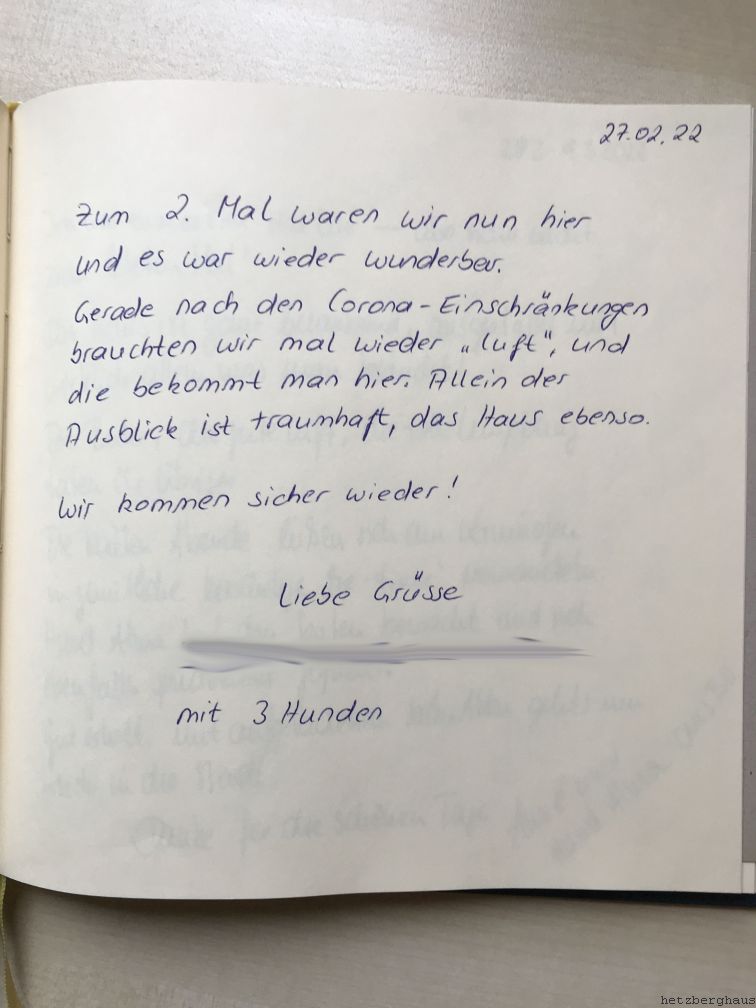 27.02.22
Zum 2. Mal waren wir nun hier
und es war wieder wunderbar.
Gerade nach den Corona-Einschränkungen
brauchten wir mal wieder „Luft", und
die bekommt man hier. Allein der
Ausblick ist traumhaft, das Haus ebenso.
Wir kommen sicher wieder!
Liebe Grüsse
mit 3 Hunden
hetzberghaus